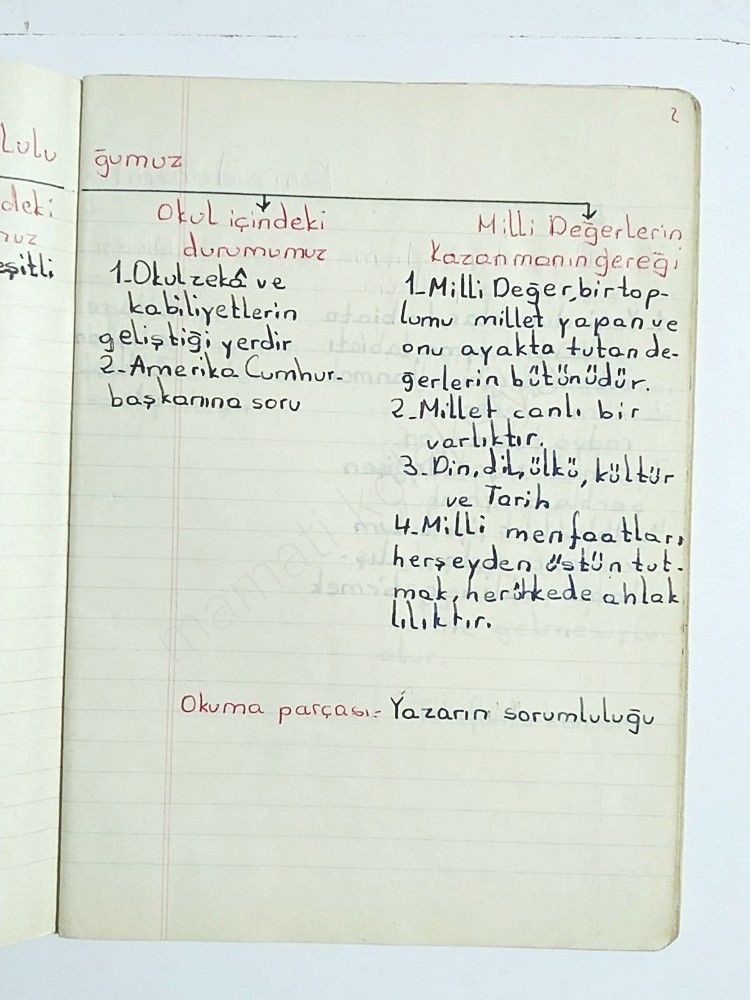 2
Lulu ğumuz
deki
nuz
eşitli
Okul içindeki
durumumuz
1-Okul zekâ ve
kabiliyetlerin
geliştiği yerdir
2-Amerika Cumhur-
başkanına soru
Milli Değerlerin
Kazanmanın gereği
1-Milli Değer, bir top-
lumu millet yapan ve
onu ayakta tutan de-
ğerlerin bütünüdür.
2-Millet canlı bir
varlıktır.
3-Din, dil, ülkü, kültür
ve Tarih
4-Milli menfaatları
herşeyden üstün tut-
mak, herülkede ahlak
lılıktır.
Okuma parçası:- Yazarın sorumluluğu